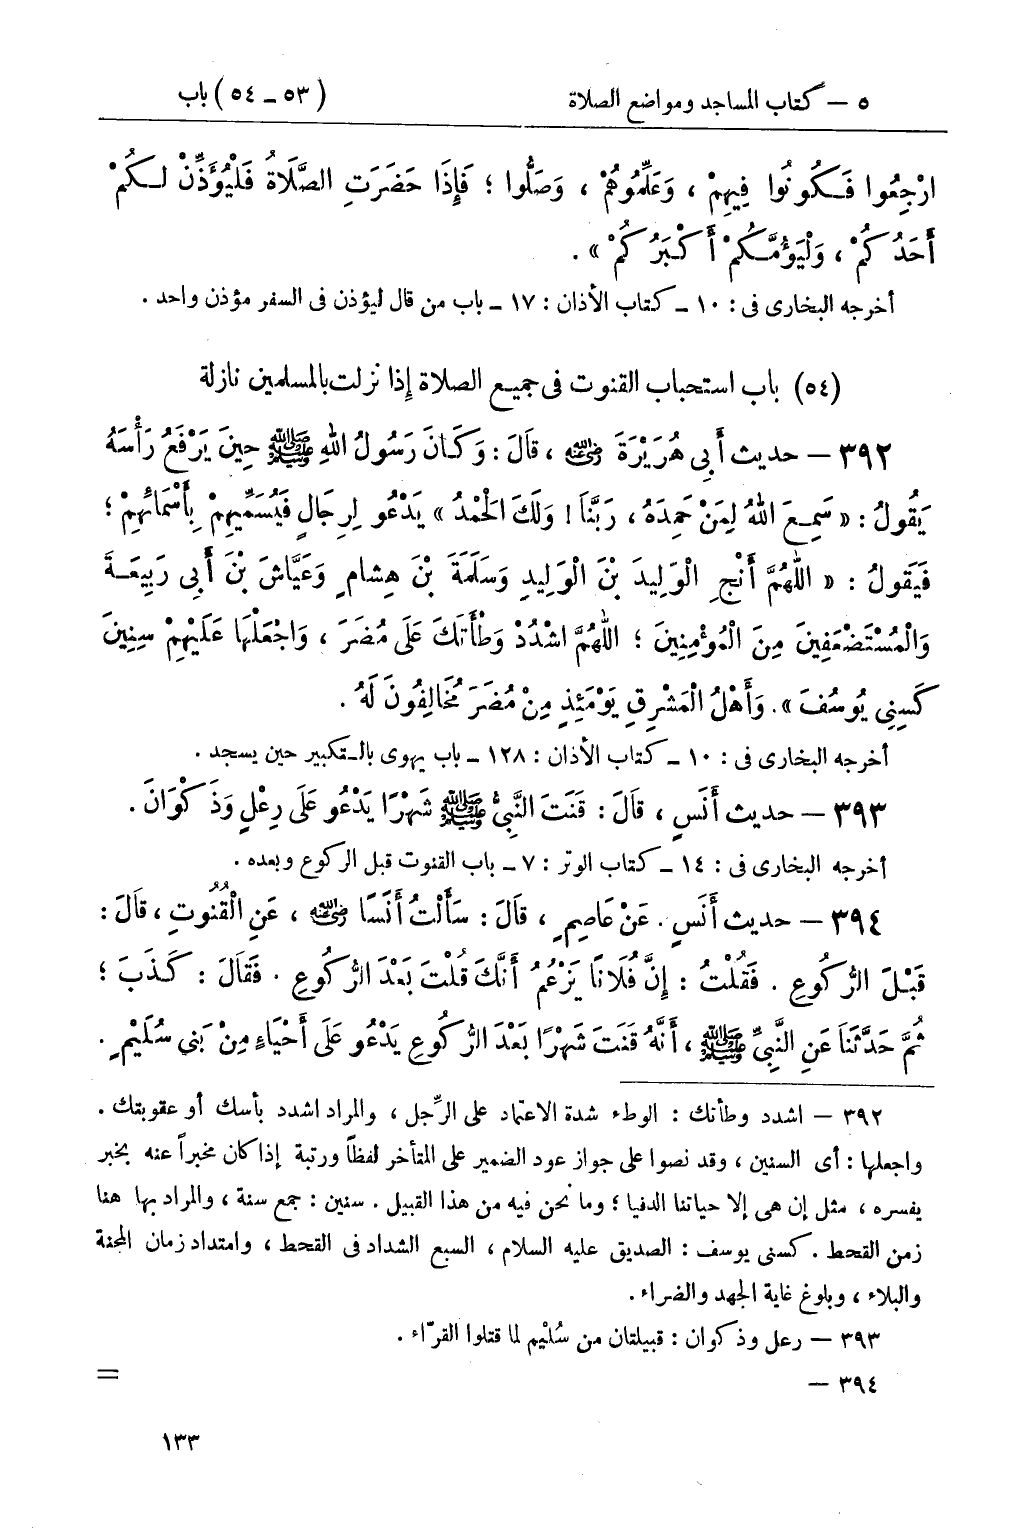 ٥ – كتاب المساجد ومواضع الصلاة (٥٣ – ٥٤) باب
ارْجِعُوا فَكُونُوا فِيهِمْ ، وَعَلِّمُوهُمْ ، وَصَلُّوا ؛ فَإِذَا حَضَرَتِ الصَّلَاةُ فَلْيُؤَذِّنْ لَكُمْ
أَحَدُكُمْ ، وَلْيَؤُمَّكُمْ أَكْبَرُكُمْ » .
أخرجه البخارى فى : ١٠ – كتاب الأذان : ١٧ – باب من قال ليؤذن فى السفر مؤذن واحد .
(٥٤) باب استحباب القنوت فى جميع الصلاة إذا نزلت بالمسلمين نازلة
٣٩٢ – حديث أَبِى هُرَيْرَةَ رضي الله عنه ، قَالَ : وَكَانَ رَسُولُ اللهِ ﷺ حِينَ يَرْفَعُ رَأْسَهُ
يَقُولُ : « سَمِعَ اللهُ لِمَنْ حَمِدَهُ ، رَبَّنَا ! وَلَكَ الْحَمْدُ » يَدْعُو لِرِجَالٍ فَيُسَمِّيهِمْ بِأَسْمَائِهِمْ ؛
فَيَقُولُ : « اللّٰهُمَّ أَنْجِ الْوَلِيدَ بْنَ الْوَلِيدِ وَسَلَمَةَ بْنَ هِشَامٍ وَعَيَّاشَ بْنَ أَبِى رَبِيعَةَ
وَالْمُسْتَضْعَفِينَ مِنَ الْمُؤْمِنِينَ ؛ اللّٰهُمَّ اشْدُدْ وَطْأَتَكَ عَلَى مُضَرَ ، وَاجْعَلْهَا عَلَيْهِمْ سِنِينَ
كَسِنِى يُوسُفَ » . وَأَهْلُ الْمَشْرِقِ يَوْمَئِذٍ مِنْ مُضَرَ مُخَالِفُونَ لَهُ .
أخرجه البخارى فى : ١٠ – كتاب الأذان : ١٢٨ – باب يهوى بالتكبير حين يسجد .
٣٩٣ – حديث أَنَسٍ ، قَالَ : قَنَتَ النَّبِىُّ ﷺ شَهْرًا يَدْعُو عَلَى رِعْلٍ وَذَكْوَانَ .
أخرجه البخارى فى : ١٤ – كتاب الوتر : ٧ – باب القنوت قبل الركوع وبعده .
٣٩٤ – حديث أَنَسٍ . عَنْ عَاصِمٍ ، قَالَ : سَأَلْتُ أَنَسًا رضي الله عنه ، عَنِ الْقُنُوتِ ، قَالَ :
قَبْلَ الرُّكُوعِ . فَقُلْتُ : إِنَّ فُلَانًا يَزْعُمُ أَنَّكَ قُلْتَ بَعْدَ الرُّكُوعِ . فَقَالَ : كَذَبَ ؛
ثُمَّ حَدَّثَنَا عَنِ النَّبِىِّ ﷺ ، أَنَّهُ قَنَتَ شَهْرًا بَعْدَ الرُّكُوعِ يَدْعُو عَلَى أَحْيَاءٍ مِنْ بَنِى سُلَيْمٍ .
٣٩٢ – اشدد وطأتك : الوطء شدة الاعتماد على الرِّجل ، والمراد اشدد بأسك أو عقوبتك .
واجعلها : أى السنين ، وقد نصوا على جواز عود الضمير على المتأخر لفظاً ورتبة إذا كان مخبراً عنه بخبر
يفسره ، مثل إن هى إلا حياتنا الدنيا ؛ وما نحن فيه من هذا القبيل . سنين : جمع سنة ، والمراد بها هنا
زمن القحط . كسنى يوسف : الصديق عليه السلام ، السبع الشداد فى القحط ، وامتداد زمان المحنة
والبلاء ، وبلوغ غاية الجهد والضراء .
٣٩٣ – رعل وذكوان : قبيلتان من سُلَيْم لما قتلوا القرّاء .
٣٩٤ – =
١٣٣